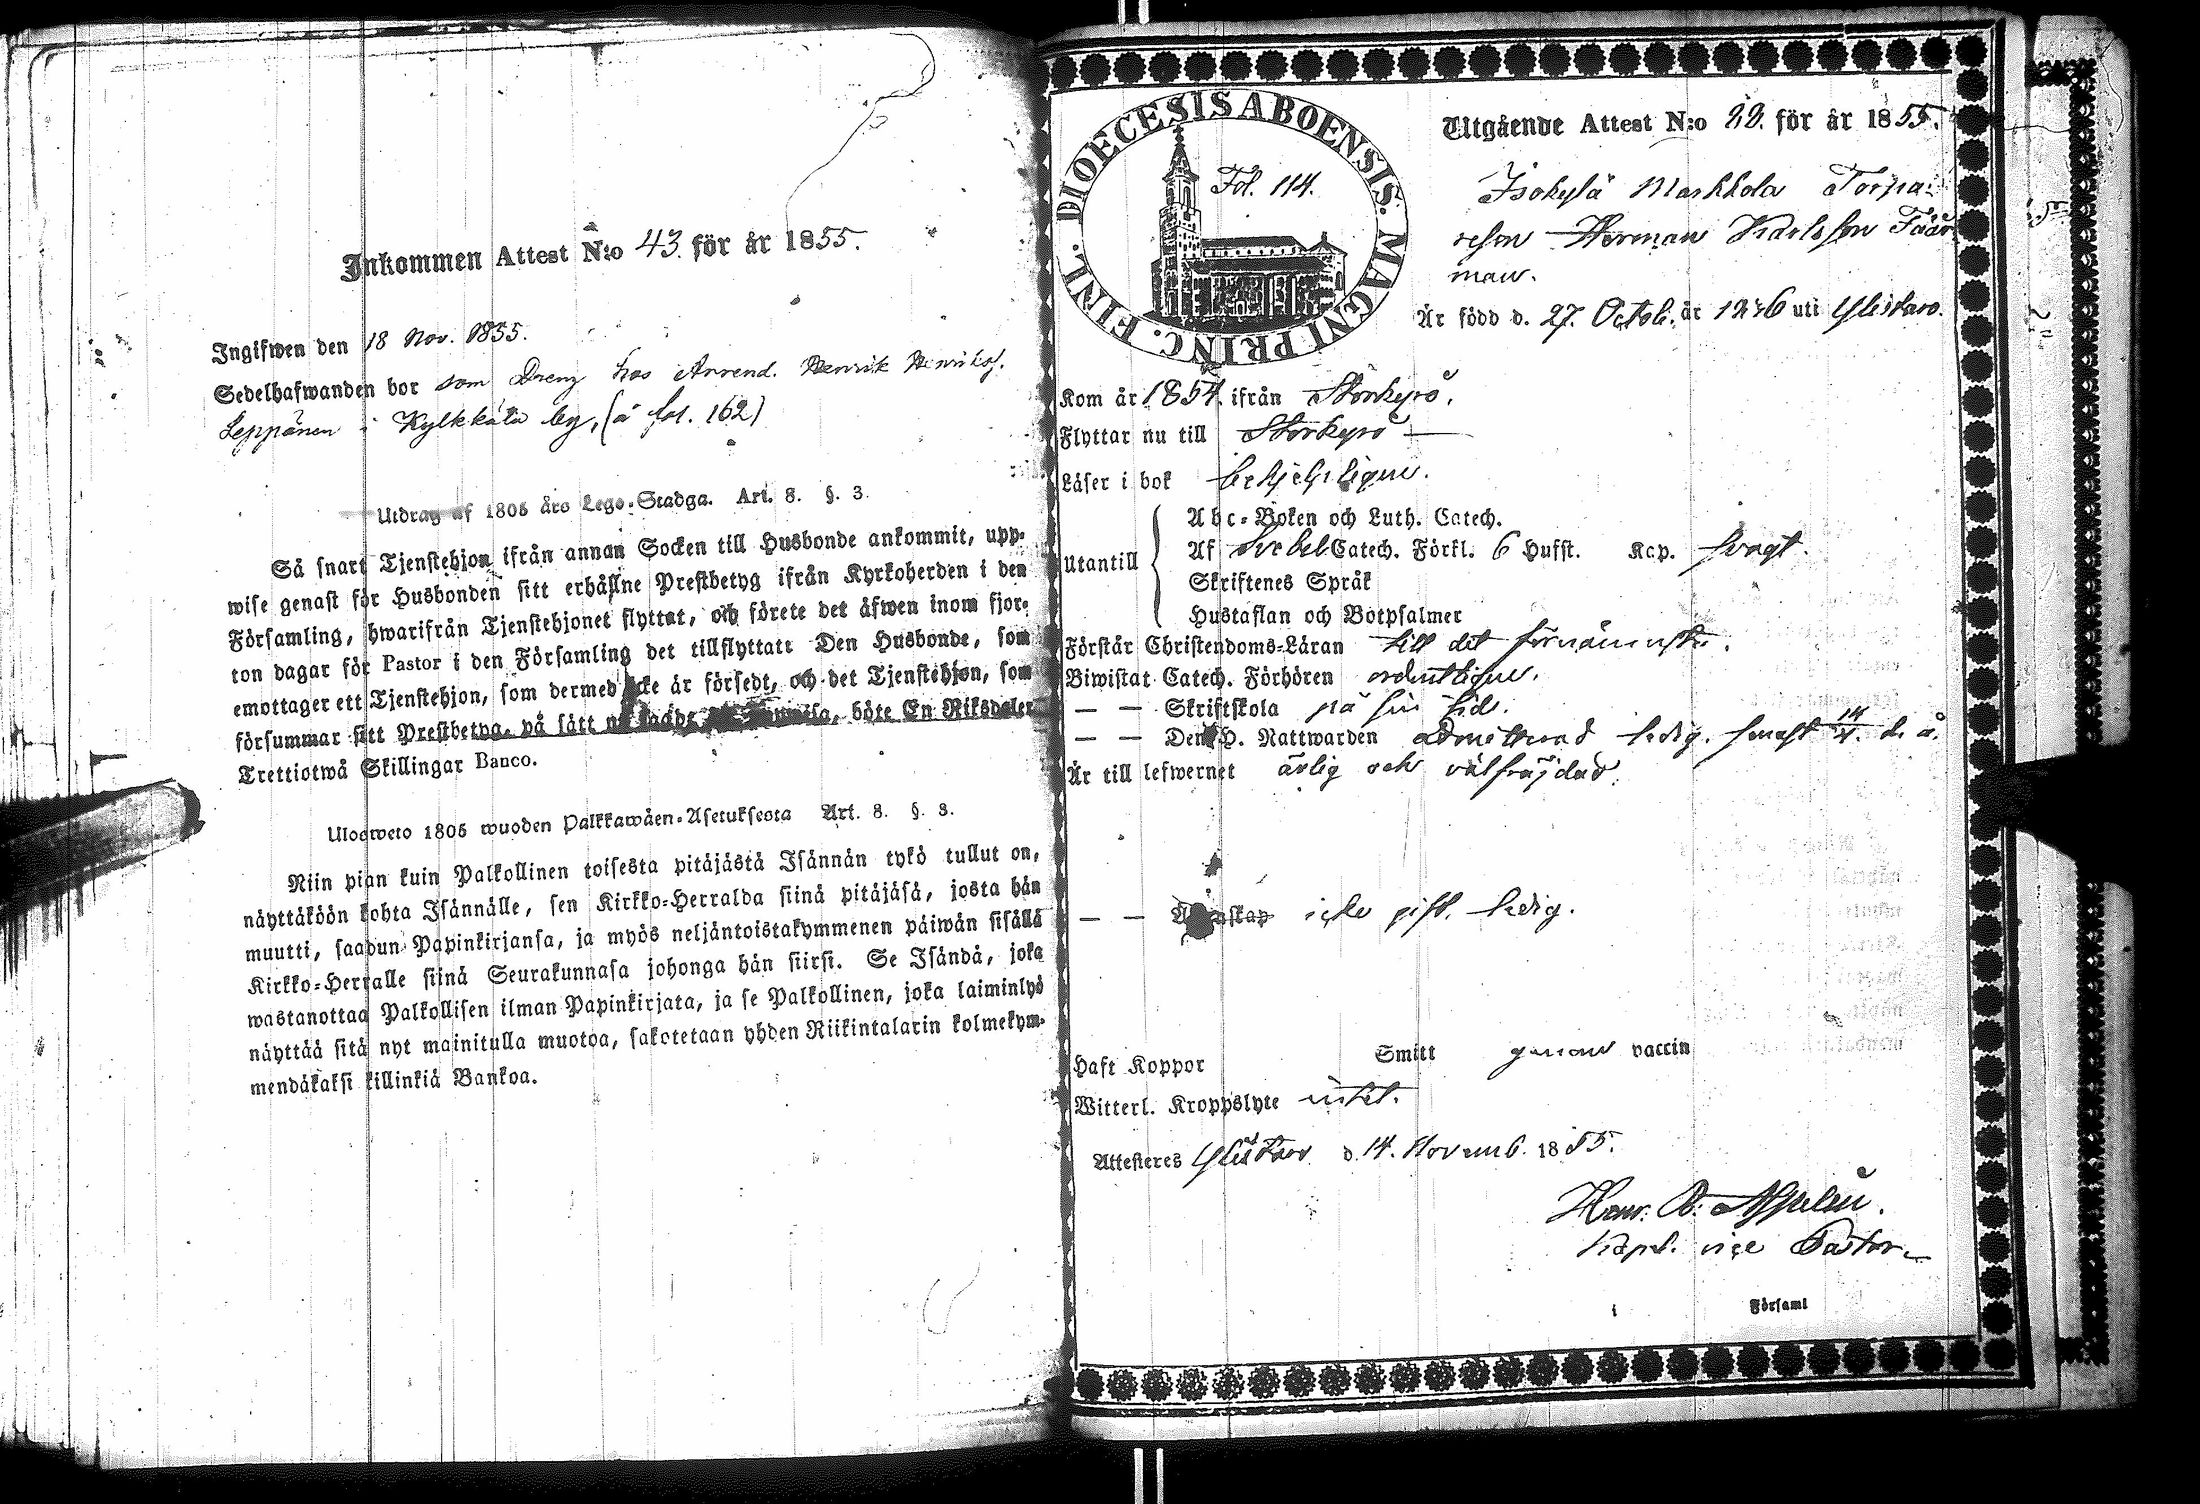 Inkommen Attest N:o 43. för år 1855.
Ingifwen den 18 Nov. 1855.
Sedelhafwanden bor som Dreng hos Arrend. Henrik Henrikss.
Leppänen i Kylkkälä by, (å fol. 162)
Utdrag af 1805 års Lego-Stadga. Art. 8. §. 3.
Så snart Tjenstehjon ifrån annan Socken till Husbonde ankommit, upp-
wise genast för Husbonden sitt erhållne Prestbetyg ifrån Kyrkoherden i den
Församling, hwarifrån Tjenstehjonet flyttat, och förete det äfwen inom fjor-
ton dagar för Pastor i den Församling det tillflyttatt Den Husbonde, som
emottager ett Tjenstehjon, som dermed icke är försedt, och det Tjenstehjon, som
försummar sitt Prestbetyg, på sätt nu sagdt, böte En Riksdaler
Trettiotwå Skillingar Banco.
Ulosweto 1805 wuoden Palkkawäen-Asetuksesta Art. 8. §. 3.
Niin pian kuin Palkollinen toisesta pitäjästä Isännän tykö tullut on,
näyttäköön kohta Isännälle, sen Kirkko-Herralda siinä pitäjäsä, josta hän
muutti, saadun Papinkirjansa, ja myös neljäntoistakymmenen päiwän sisällä
Kirkko-Herralle siinä Seurakunnasa johonga hän siirsi. Se Isändä, joka
wastanottaa Palkollisen ilman Papinkirjata, ja se Palkollinen, joka laiminlyö
näyttää sitä nyt mainitulla muotoa, sakotetaan yhden Riikintalarin kolmekym-
mendäkaksi killinkiä Bankoa.
DIOECESIS ABOENSIS. MAGNI PRINC. FINL.
Fol. 114.
Utgående Attest N:o 22. för år 1855.
Isokylä Markkola Torpa-
reson Herman Karlsson
man.
Är född d. 27. Octob. år uti Ylistaro.
Kom år 1854. ifrån Storkyrö.
Flyttar nu till Storkyrö
Läser i bok behjelpligen.
Utantill
Abc-Boken och Luth. Catech.
Af Svebel Catech. Förkl. 6 Hufst. Kap. svagt.
Skriftenes Språk
Hustaflan och Botpsalmer
Förstår Christendoms-Läran till det förnämsta.
Biwistat Catech. Förhören ordentligen.
— — Skriftskola på sin tid.
— — Den H. Nattwarden admitterad ledig. senast d. å.
Är till lefwernet ärlig och välfräjdad.
— — icke gift, ledig.
Haft Koppor Smitt genom vaccin
Witterl. Kroppslyte intet.
Attesteres Ylistaro d. 14. Novemb. 1855.
Henr. A:
Kapel. vice Pastor.
i Församl